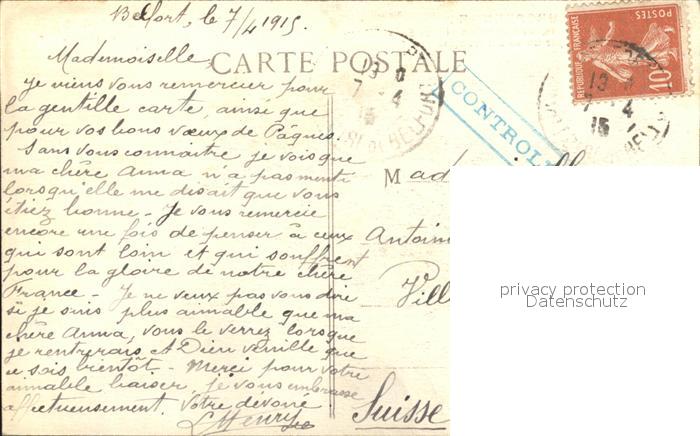 Belfort, le 7/4 1915
Mademoiselle,
CARTE POSTALE
je viens vous remercier pour
la gentille carte, ainsi que
pour vos bons vœux de Pâques.
Sans vous connaitre, je vois que
ma chère Anna n'a pas menti
lorsqu'elle me disait que vous
étiez bonne - Je vous remercie
encore une fois de penser à ceux
qui sont loin et qui souffrent
pour la gloire de notre chère
France - Je ne veux pas vous dire
si je suis plus aimable que ma
chère Anna, vous le verrez lorsque
je rentrerais. A Dieu veuille que
ce sois bientôt. - Merci pour votre
aimable baiser, je vous embrasse
affectueusement. Votre dévoué
LHenry
REPUBLIQUE FRANÇAISE
POSTES
10
13
7 - 4
15
BELFORT
13
7 - 4
15
CONTROL
Mad
Antoin
Vill
Suisse
privacy protection
Datenschutz